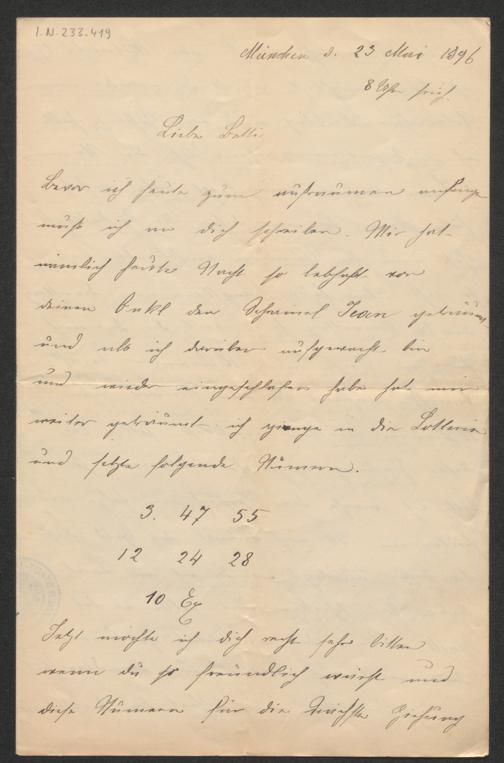 I.N. 233.419
München d. 23 Mai 1896
8 Uhr früh.
Liebe Betti
Bevor ich heute zum aufräumen anfange
muß ich an dich schreiben. Mir hat
nämlich heute Nacht so lebhaft von
deinen Onkl den Schramel Jean geträumt,
und als ich darüber aufgewacht bin
und wieder eingeschlafen habe hat mir
weiter geträumt ich ginge in die Lotterie
und setzte folgende Nümern.
3. 47 55
12 24 28
10
Jetzt möchte ich dich recht sehr bitten
wenn du so freundlich wärst und
diese Nümern für die nächste Ziehung